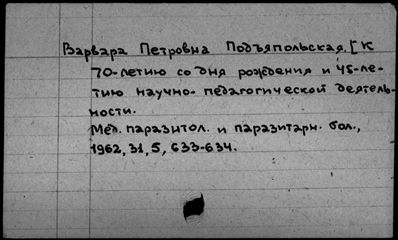 Варвара Петровна Подъяпольская. [К
70-летию со дня рождения и 45-ле-
тию научно-педагогической деятель-
ности.
Мед. паразитол. и паразитарн. бол.,
1962, 31, 5, 633-634.